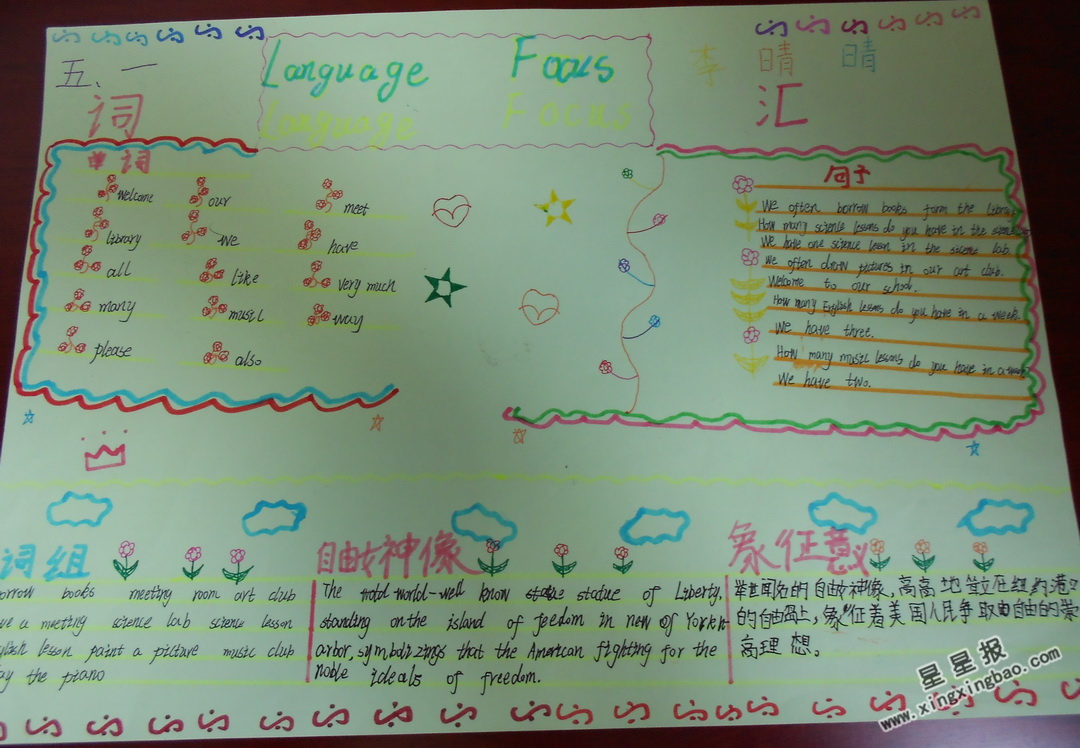 五、一
Language Focus
李晴晴
Language Focus
词
汇
单词
welcome our meet
library we have
all like very much
many music way
please also
句子
We often borrow books form the
How many science lessons do you have in the
We have one science lesson in the sicence lab.
We often draw pictures in our art club.
Welcome to our school.
How many English lessons do you have in a week.
We have three.
How many music lessons do you have in a
We have two.
词组
books meeting room art club
a meeting science lab science lesson
lesson paint a picture music club
the piano
自由女神像
The world-well know statue of Liberty,
standing on the island of feedom in new of York
arbor, symbolizings that the American fighting for the
noble ideals of freedom.
象征意义
举世闻名的自由女神像,高高地竖立在纽约港
的自由岛上,象征着美国人民争取自由的崇
高理想。
星星报
www.xingxingbao.com